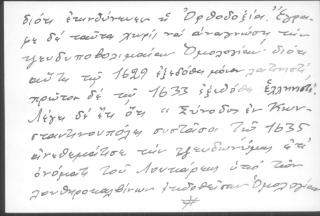 διότι ἐκινδύνευεν ἡ Ὀρθοδοξία. Ἔγρα-
ψε δέ ταῦτα χωρίς νά ἀναγνώσῃ τήν
ψευδυποβολιμαίαν Ὁμολογίαν διότι
αὕτη τῷ 1629 ἐξεδόθη μόνον λατινιστί
πρῶτον δέ τῷ 1633 ἐξεδόθη ἑλληνιστί.
Λέγει δέ ἔτι ὅτι "Σύνοδος ἐν Κων-
σταντινουπόλει συστᾶσα τῷ 1635
ἀνεθεμάτισε τήν ψευδωνύμως ἐπ'
ὀνόματι τοῦ Λουκάρεως ὑπό τῶν
λουθηροκαλβίνων ἐκδοθεῖσαν Ὁμολογίαν